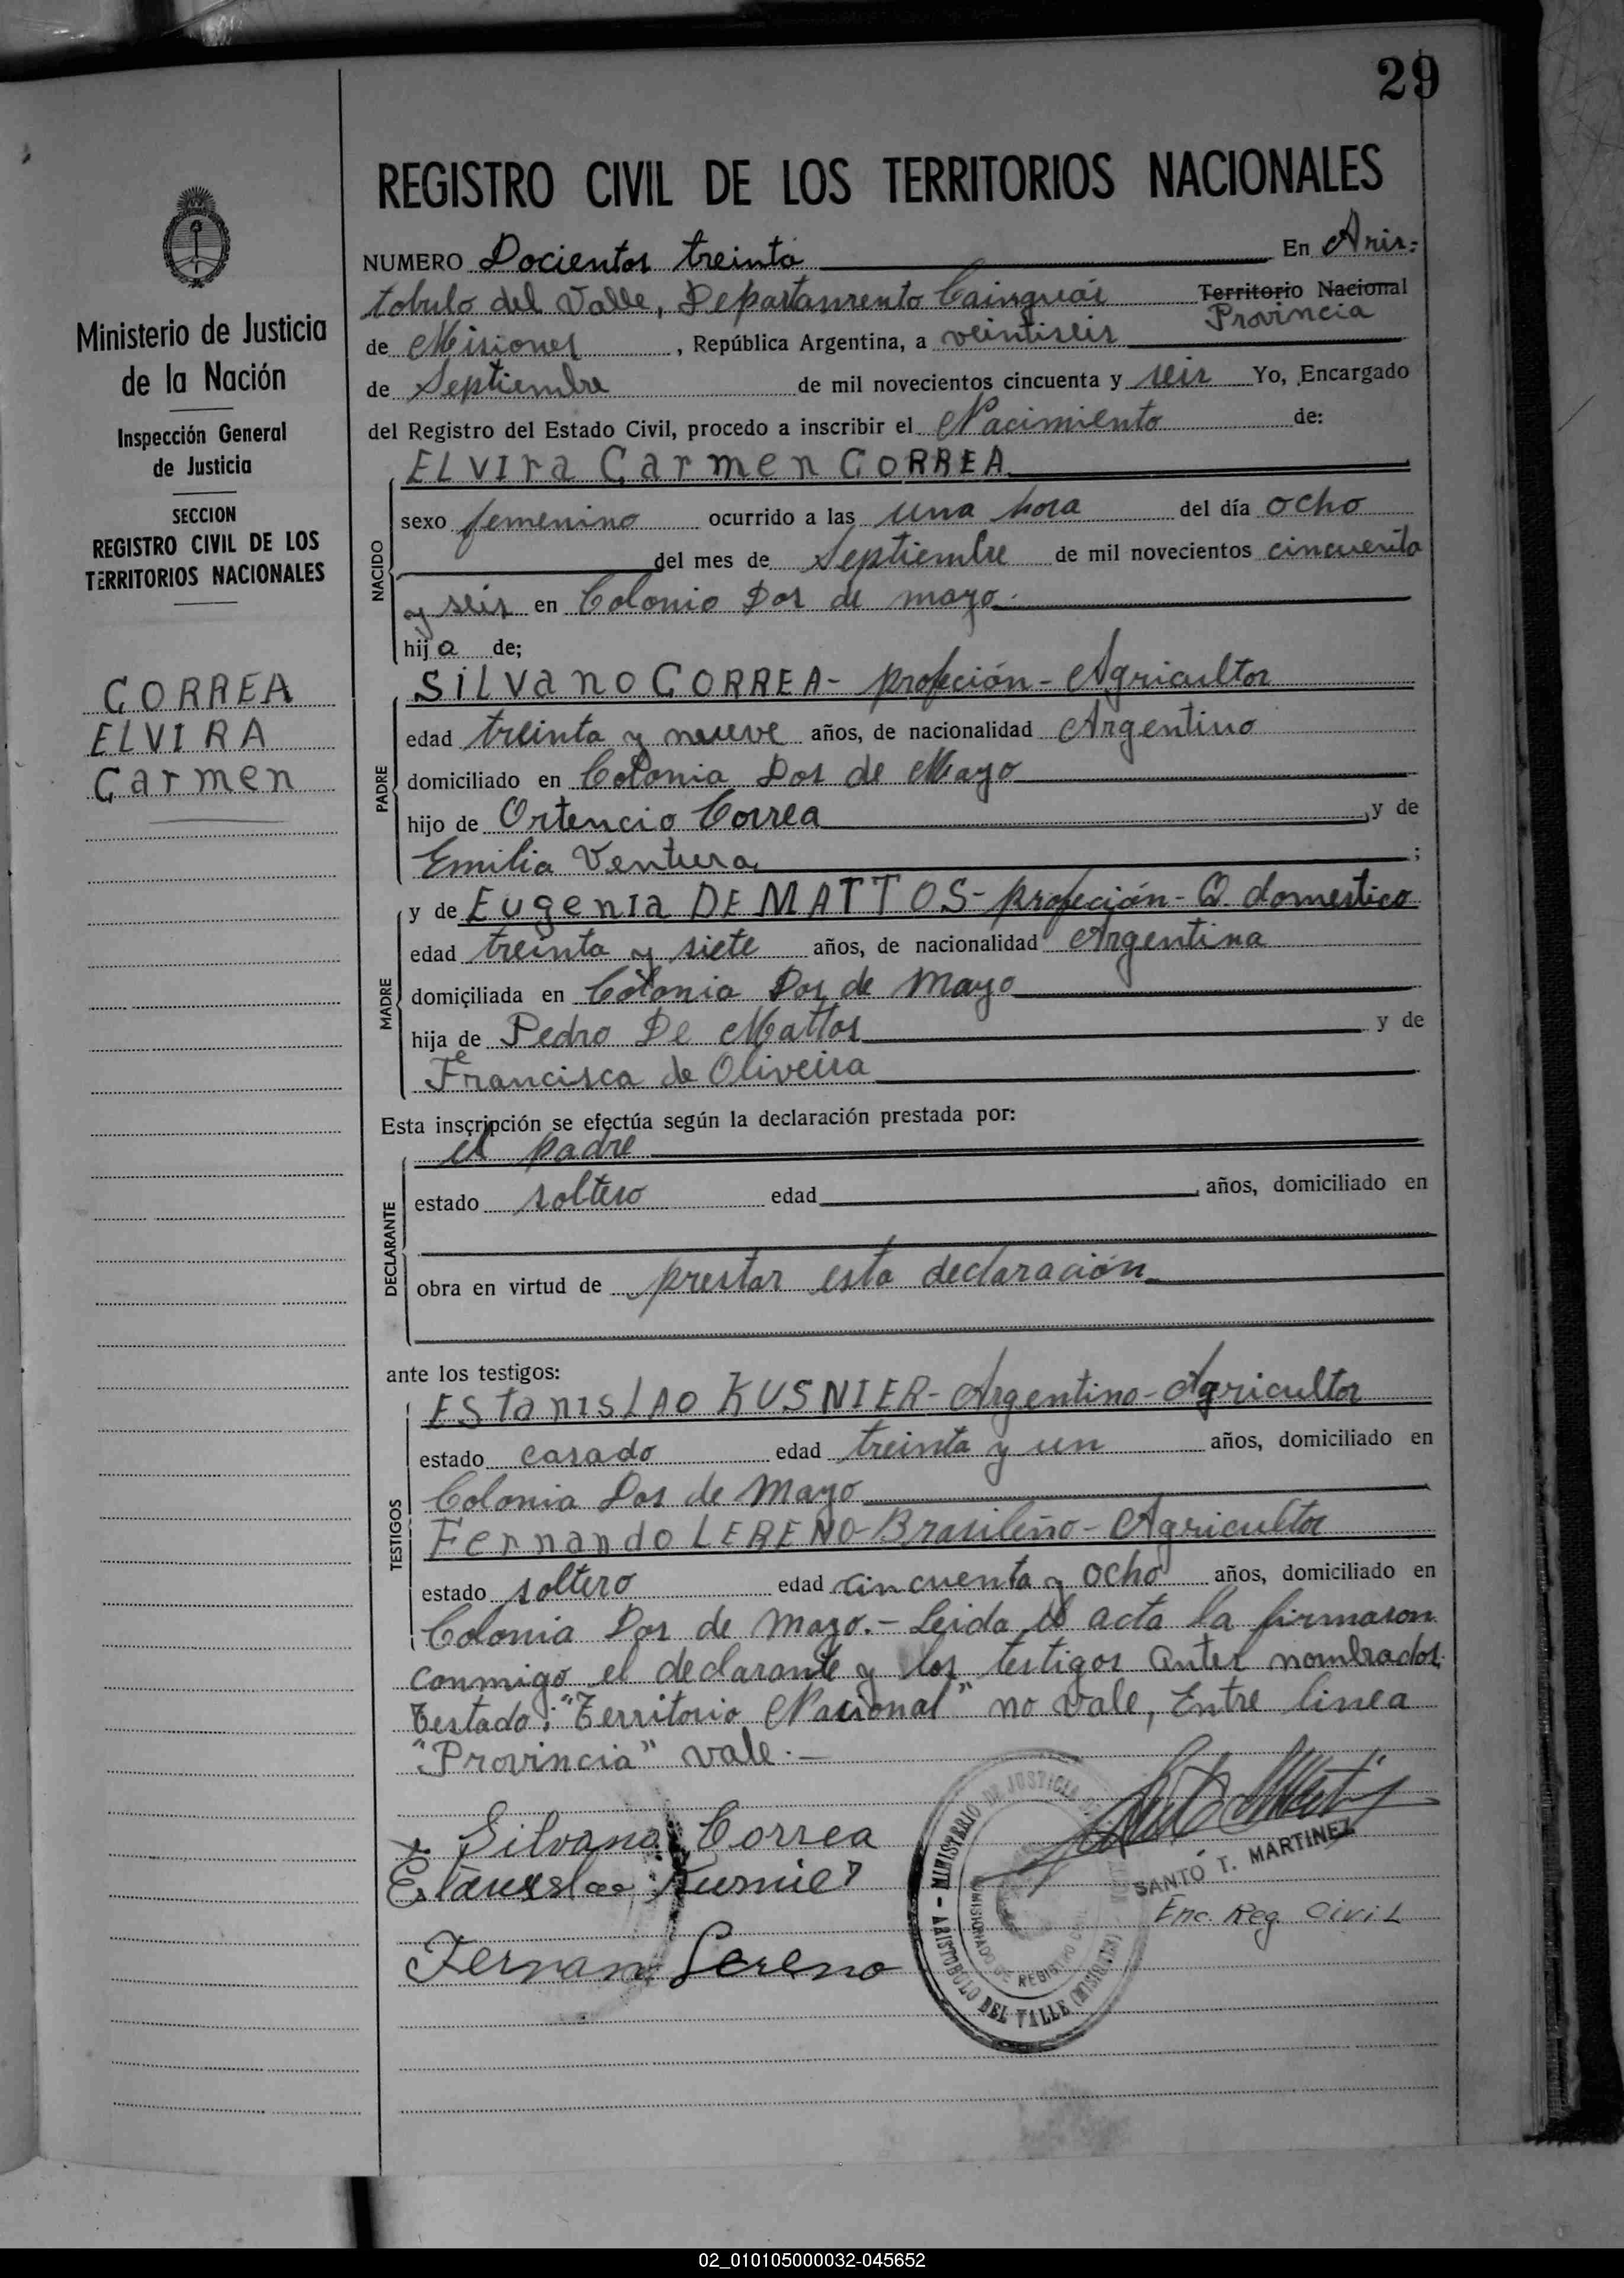 29
REGISTRO CIVIL DE LOS TERRITORIOS NACIONALES
Ministerio de Justicia
de la Nación
Inspección General
de Justicia
SECCION
REGISTRO CIVIL DE LOS
TERRITORIOS NACIONALES
CORREA
ELVIRA
Carmen
NUMERO Docientos treinta En Aris-
tobulo del Valle, Departamento Cainguás Territorio Nacional
Provincia
de Misiones, República Argentina, a veintiseis
de Septiembre de mil novecientos cincuenta y seis Yo, Encargado
del Registro del Estado Civil, procedo a inscribir el Nacimiento de:
ELVIra Carmen CORREA
NACIDO
sexo femenino ocurrido a las una hora del día ocho
del mes de Septiembre de mil novecientos cincuenta
y seis en Colonia Dos de mayo.
hija de;
SILVano CORREA- profeción- Agricultor
PADRE
edad treinta y nueve años, de nacionalidad Argentino
domiciliado en Colonia Dos de Mayo
hijo de Ortencio Correa, y de
Emilia Ventura;
y de EugenIa DE MATTOS- profeción- Q. domestico
MADRE
edad treinta y siete años, de nacionalidad Argentina
domiciliada en Colonia Dos de Mayo
hija de Pedro De Mattos y de
Francisca de Oliveira
Esta inscripción se efectúa según la declaración prestada por:
el padre
DECLARANTE
estado soltero edad, años, domiciliado en
obra en virtud de prestar esta declaración
ante los testigos:
EStanISLAO KUSNIER- Argentino- Agricultor
TESTIGOS
estado casado edad treinta y un años, domiciliado en
Colonia Dos de Mayo
Fernando LERENO- Brasileño- Agricultor
estado soltero edad cincuenta y ocho años, domiciliado en
Colonia Dos de Mayo.- Leida el acta la firmaron
conmigo el declarante y los testigos antes nombrados.
Testado: "Territorio Nacional" no vale, Entre linea
"Provincia" vale.-
Silvano Correa
Estanislao Kusnier
Fernan Lereno
MINISTERIO DE JUSTICIA
ARISTOBULO DEL VALLE (MISIONES)
SANTO T. MARTINEZ
Enc. Reg. Civil
02_010105000032-045652